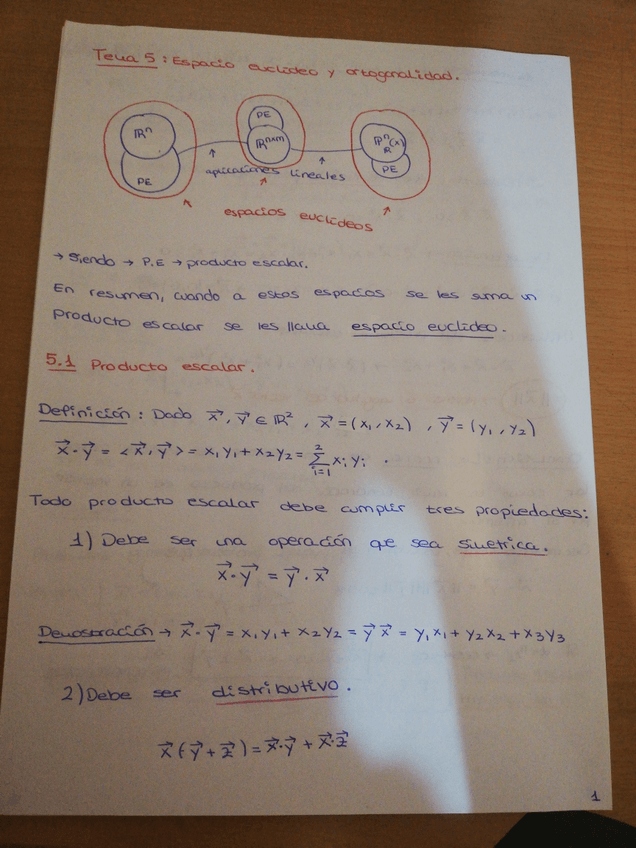 Tema 5: Espacio euclideo y ortogonalidad.
PE
ℝⁿ
ℝⁿˣᵐ
ℝⁿ(x)
ℝ
PE
PE
aplicaciones lineales
espacios euclídeos
→ Siendo → P.E → producto escalar.
En resumen, cuando a estos espacios se les suma un
producto escalar se les llama espacio euclideo.
5.1 Producto escalar.
Definición: Dado x⃗, y⃗ ∈ ℝ², x⃗ = (x₁, x₂), y⃗ = (y₁, y₂)
x⃗·y⃗ = <x⃗, y⃗> = x₁y₁ + x₂y₂ = ∑²ᵢ₌₁ xᵢyᵢ.
Todo producto escalar debe cumplir tres propiedades:
1) Debe ser una operación que sea simetrica.
x⃗·y⃗ = y⃗·x⃗
Demostración → x⃗·y⃗ = x₁y₁ + x₂y₂ = y⃗ x⃗ = y₁x₁ + y₂x₂ + x₃y₃
2) Debe ser distributivo.
x⃗(y⃗ + z⃗) = x⃗·y⃗ + x⃗·z⃗
1